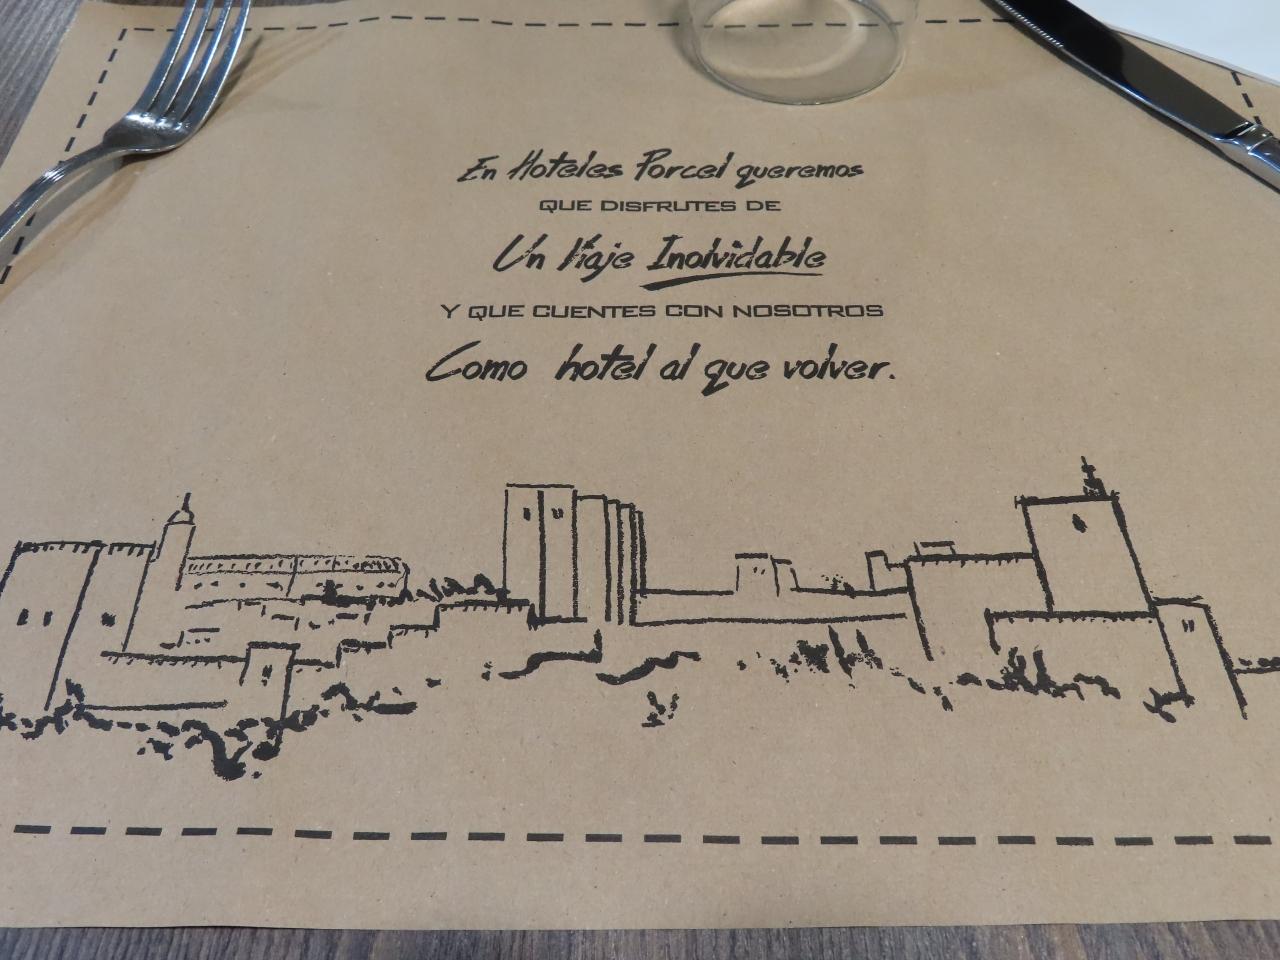 En Hoteles Porcel queremos
QUE DISFRUTES DE
Un Viaje Inolvidable
Y QUE CUENTES CON NOSOTROS
Como hotel al que volver.